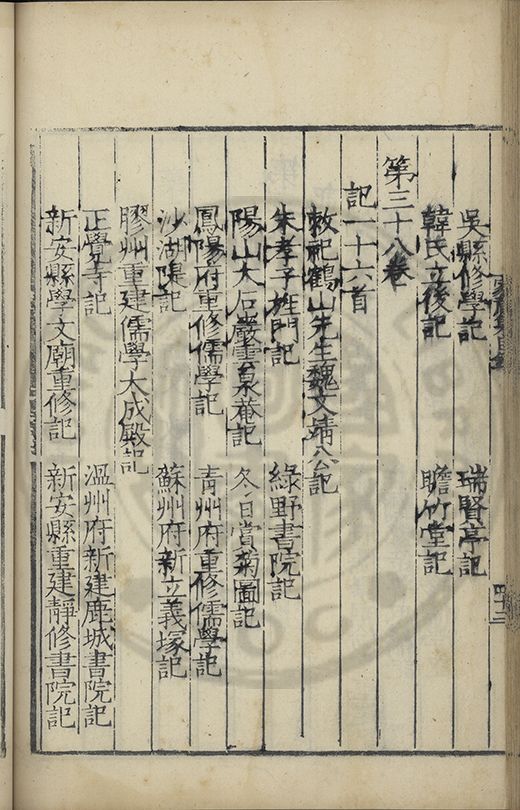 吳縣修學記 瑞賢亭記
韓氏立後記 瞻竹堂記
第三十八卷
記一十六首
敕祀鶴山先生魏文靖公記
朱孝子旌門記 綠野書院記
陽山大石巖雲泉菴記 冬日賞菊圖記
鳳陽府重修儒學記 青州府重修儒學記
沙湖隄記 蘇州府新立義塚記
膠州重建儒學大成殿記
正覺寺記 溫州府新建鹿城書院記
新安縣學文廟重修記 新安縣重建靜修書院記